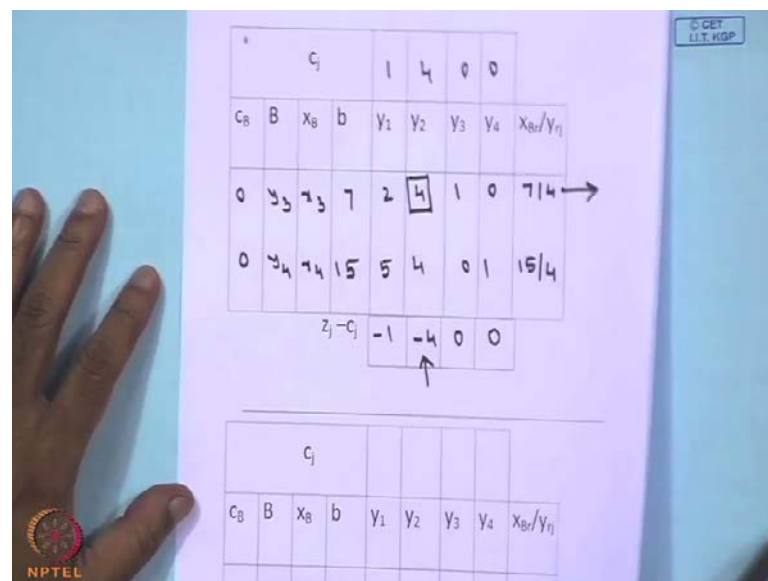 © CET
I.I.T. KGP
cj 1 4 0 0
cB B xB b y1 y2 y3 y4 xBr/yrj
0 y3 x3 7 2 4 1 0 7/4 →
0 y4 x4 15 5 4 0 1 15/4
zj -cj -1 -4 0 0
↑
cj
cB B xB b y1 y2 y3 y4 xBr/yrj
NPTEL